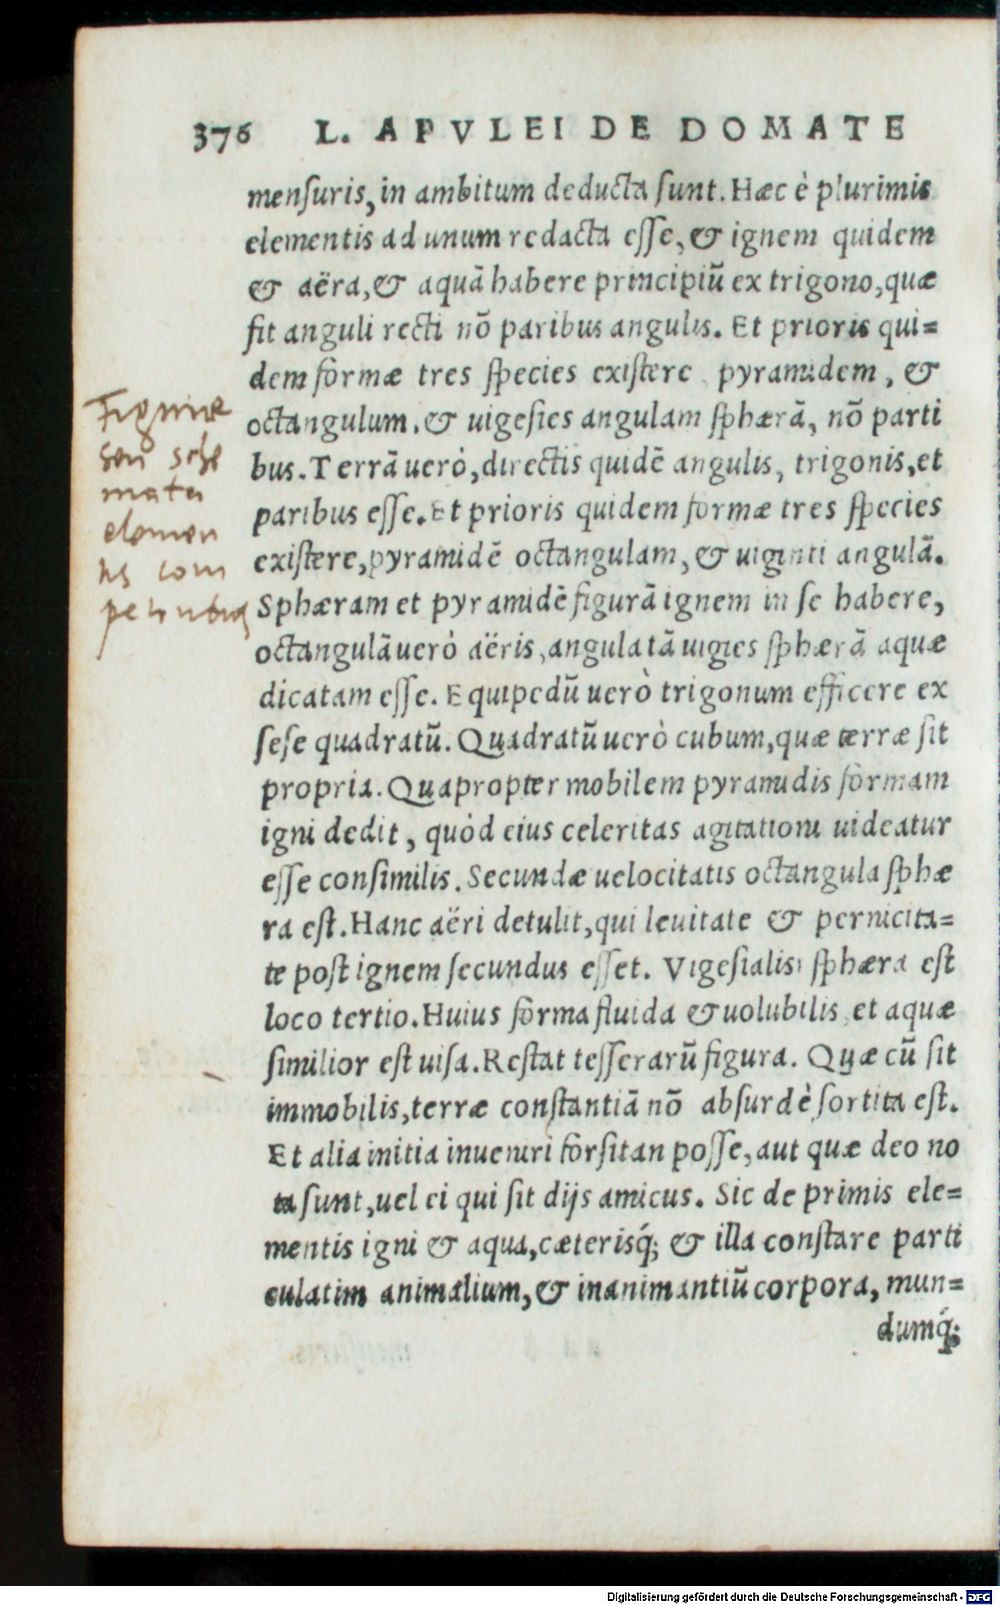 376 L. APVLEI DE DOMATE
mensuris, in ambitum deducta sunt. Hæc è plurimis
elementis ad unum redacta esse, & ignem quidem
& aëra, & aquā habere principiū ex trigono, quæ
fit anguli recti nō paribus angulis. Et prioris qui=
dem formæ tres species existere pyramidem, &
octangulum. & uigesies angulam sphærā, nō parti
bus. Terrā uerò, directis quidē angulis, trigonis, et
paribus esse. Et prioris quidem formæ tres species
existere, pyramidē octangulam, & uiginti angulā.
Sphæram et pyramidē figurā ignem in se habere,
octangulā uerò aëris, angulatā uigies sphærā aquæ
dicatam esse. Equipedū uerò trigonum efficere ex
sese quadratū. Quadratū uerò cubum, quæ terræ sit
propria. Quapropter mobilem pyramidis formam
igni dedit, quòd eius celeritas agitationi uideatur
esse consimilis. Secundæ uelocitatis octangula sphæ
ra est. Hanc aëri detulit, qui leuitate & pernicita=
te post ignem secundus esset. Vigesialis sphæra est
loco tertio. Huius forma fluida & uolubilis et aquæ
similior est uisa. Restat tesserarū figura. Quæ cū sit
immobilis, terræ constantiā nō absurdè sortita est.
Et alia initia inueniri forsitan posse, aut quæ deo no
ta sunt, uel ei qui sit dijs amicus. Sic de primis ele=
mentis igni & aqua, cæterisq́; & illa constare parti
culatim animalium, & inanimantiū corpora, mun=
dumq́;
Figuræ
seu sche
mata
elemen
tis com
petentia
Digitalisierung gefördert durch die Deutsche Forschungsgemeinschaft - DFG